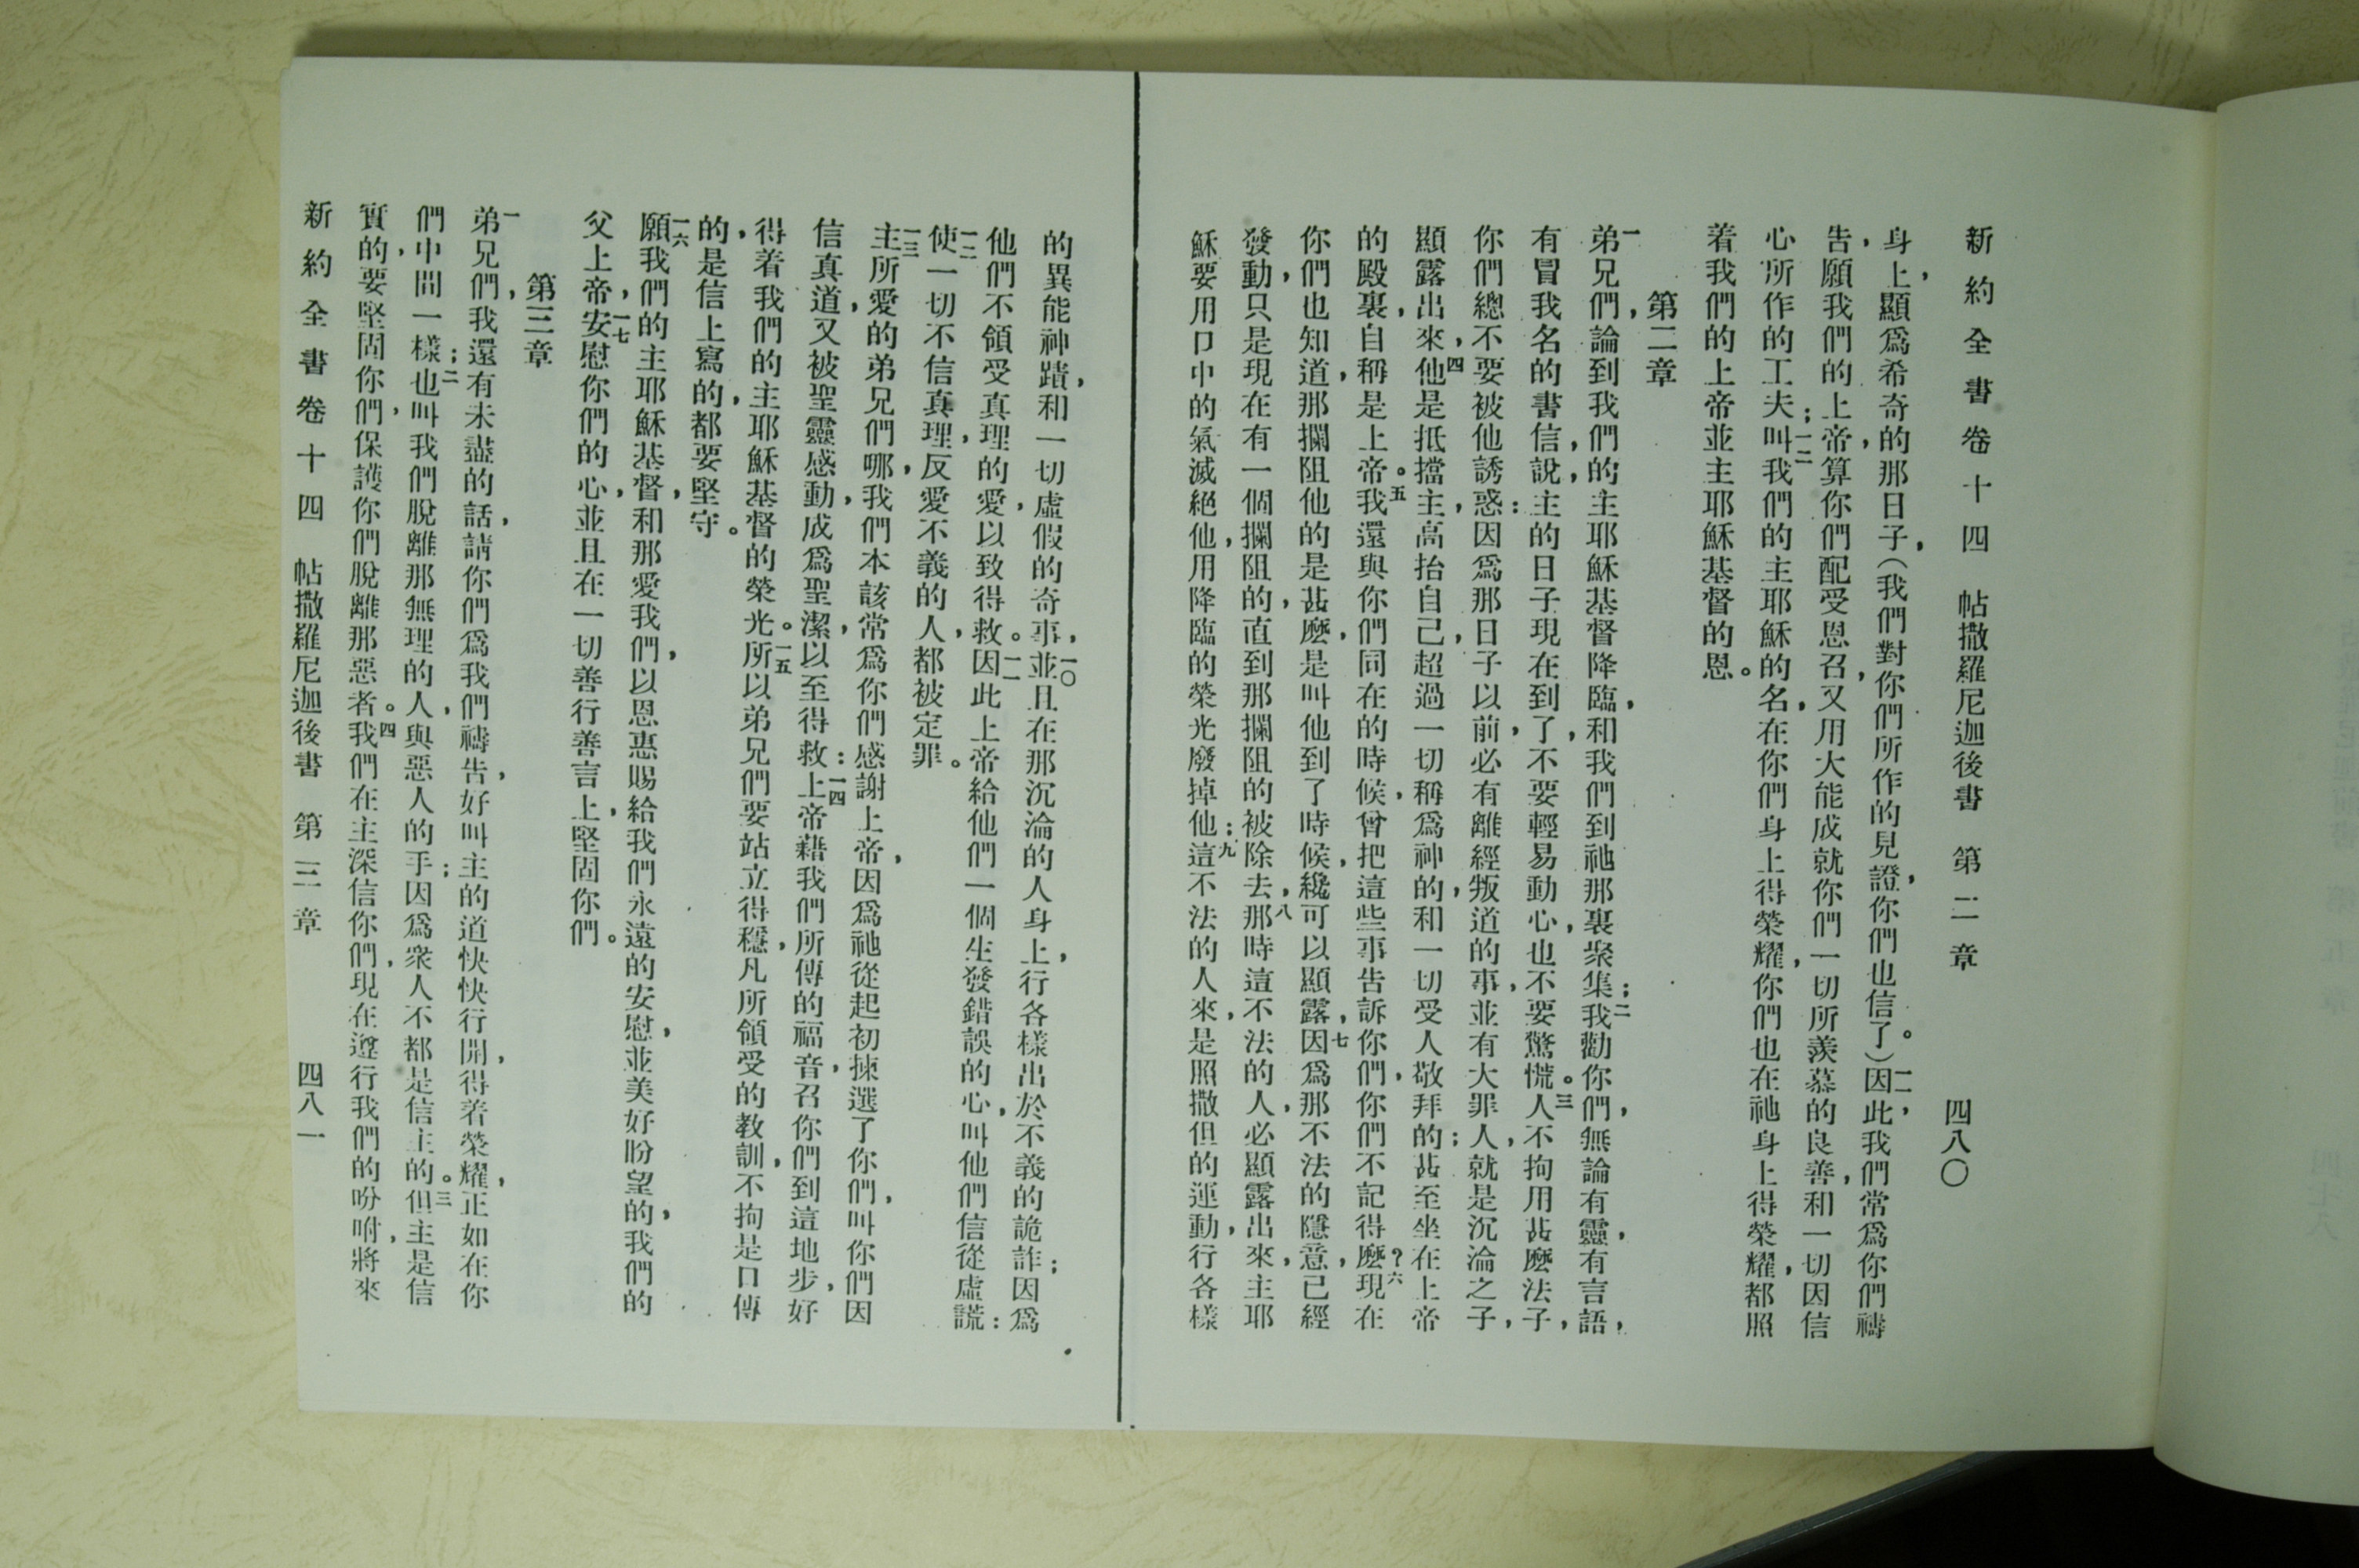 新約全書卷十四 帖撒羅尼迦後書 第二章 四八〇
身上,顯爲希奇的那日子,(我們對你們所作的見證,你們也信了。)一一因此,我們常爲你們禱
告,願我們的上帝,算你們配受恩召,又用大能成就你們一切所羨慕的良善,和一切因信
心所作的工夫;一二叫我們的主耶穌的名,在你們身上得榮耀,你們也在祂身上得榮耀,都照
着我們的上帝並主耶穌基督的恩。
第二章
一弟兄們,論到我們的主耶穌基督降臨,和我們到祂那裏聚集;二我勸你們,無論有靈,有言語,
有冒我名的書信,說,主的日子現在到了,不要輕易動心,也不要驚慌。三人不拘用甚麼法子,
你們總不要被他誘惑:因爲那日子以前,必有離經叛道的事,並有大罪人,就是沉淪之子,
顯露出來,四他是抵擋主,高抬自己,超過一切稱爲神的,和一切受人敬拜的;甚至坐在上帝
的殿裏,自稱是上帝。五我還與你們同在的時候,曾把這些事告訴你們,你們不記得麼?六現在
你們也知道,那攔阻他的是甚麼,是叫他到了時候,纔可以顯露,七因爲那不法的隱意,已經
發動,只是現在有一個攔阻的,直到那攔阻的被除去,八那時這不法的人,必顯露出來,主耶
穌要用口中的氣滅絕他,用降臨的榮光廢掉他:九這不法的人來,是照撒但的運動,行各樣
的異能神蹟,和一切虛假的奇事,一〇並且在那沉淪的人身上,行各樣出於不義的詭詐;因爲
他們不領受真理的愛,以致得救。一一因此上帝給他們一個生發錯誤的心,叫他們信從虛謊:
一二使一切不信真理,反愛不義的人,都被定罪。
一三主所愛的弟兄們哪,我們本該常爲你們感謝上帝,因爲祂從起初揀選了你們,叫你們因
信真道,又被聖靈感動,成爲聖潔,以至得救:一四上帝藉我們所傳的福音,召你們到這地步,好
得着我們的主耶穌基督的榮光。一五所以弟兄們要站立得穩,凡所領受的教訓,不拘是口傳
的,是信上寫的,都要堅守。
一六願我們的主耶穌基督,和那愛我們,以恩惠賜給我們永遠的安慰,並美好盼望的,我們的
父上帝,一七安慰你們的心,並且在一切善行善言上,堅固你們。
第三章
一弟兄們,我還有未盡的話,請你們爲我們禱告,好叫主的道快快行開,得着榮耀,正如在你
們中間一樣;二也叫我們脫離那無理的人,與惡人的手;因爲衆人不都是信主的。三但主是信
實的,要堅固你們,保護你們脫離那惡者。四我們在主深信你們,現在遵行我們的吩咐,將來
新約全書卷十四 帖撒羅尼迦後書 第三章 四八一